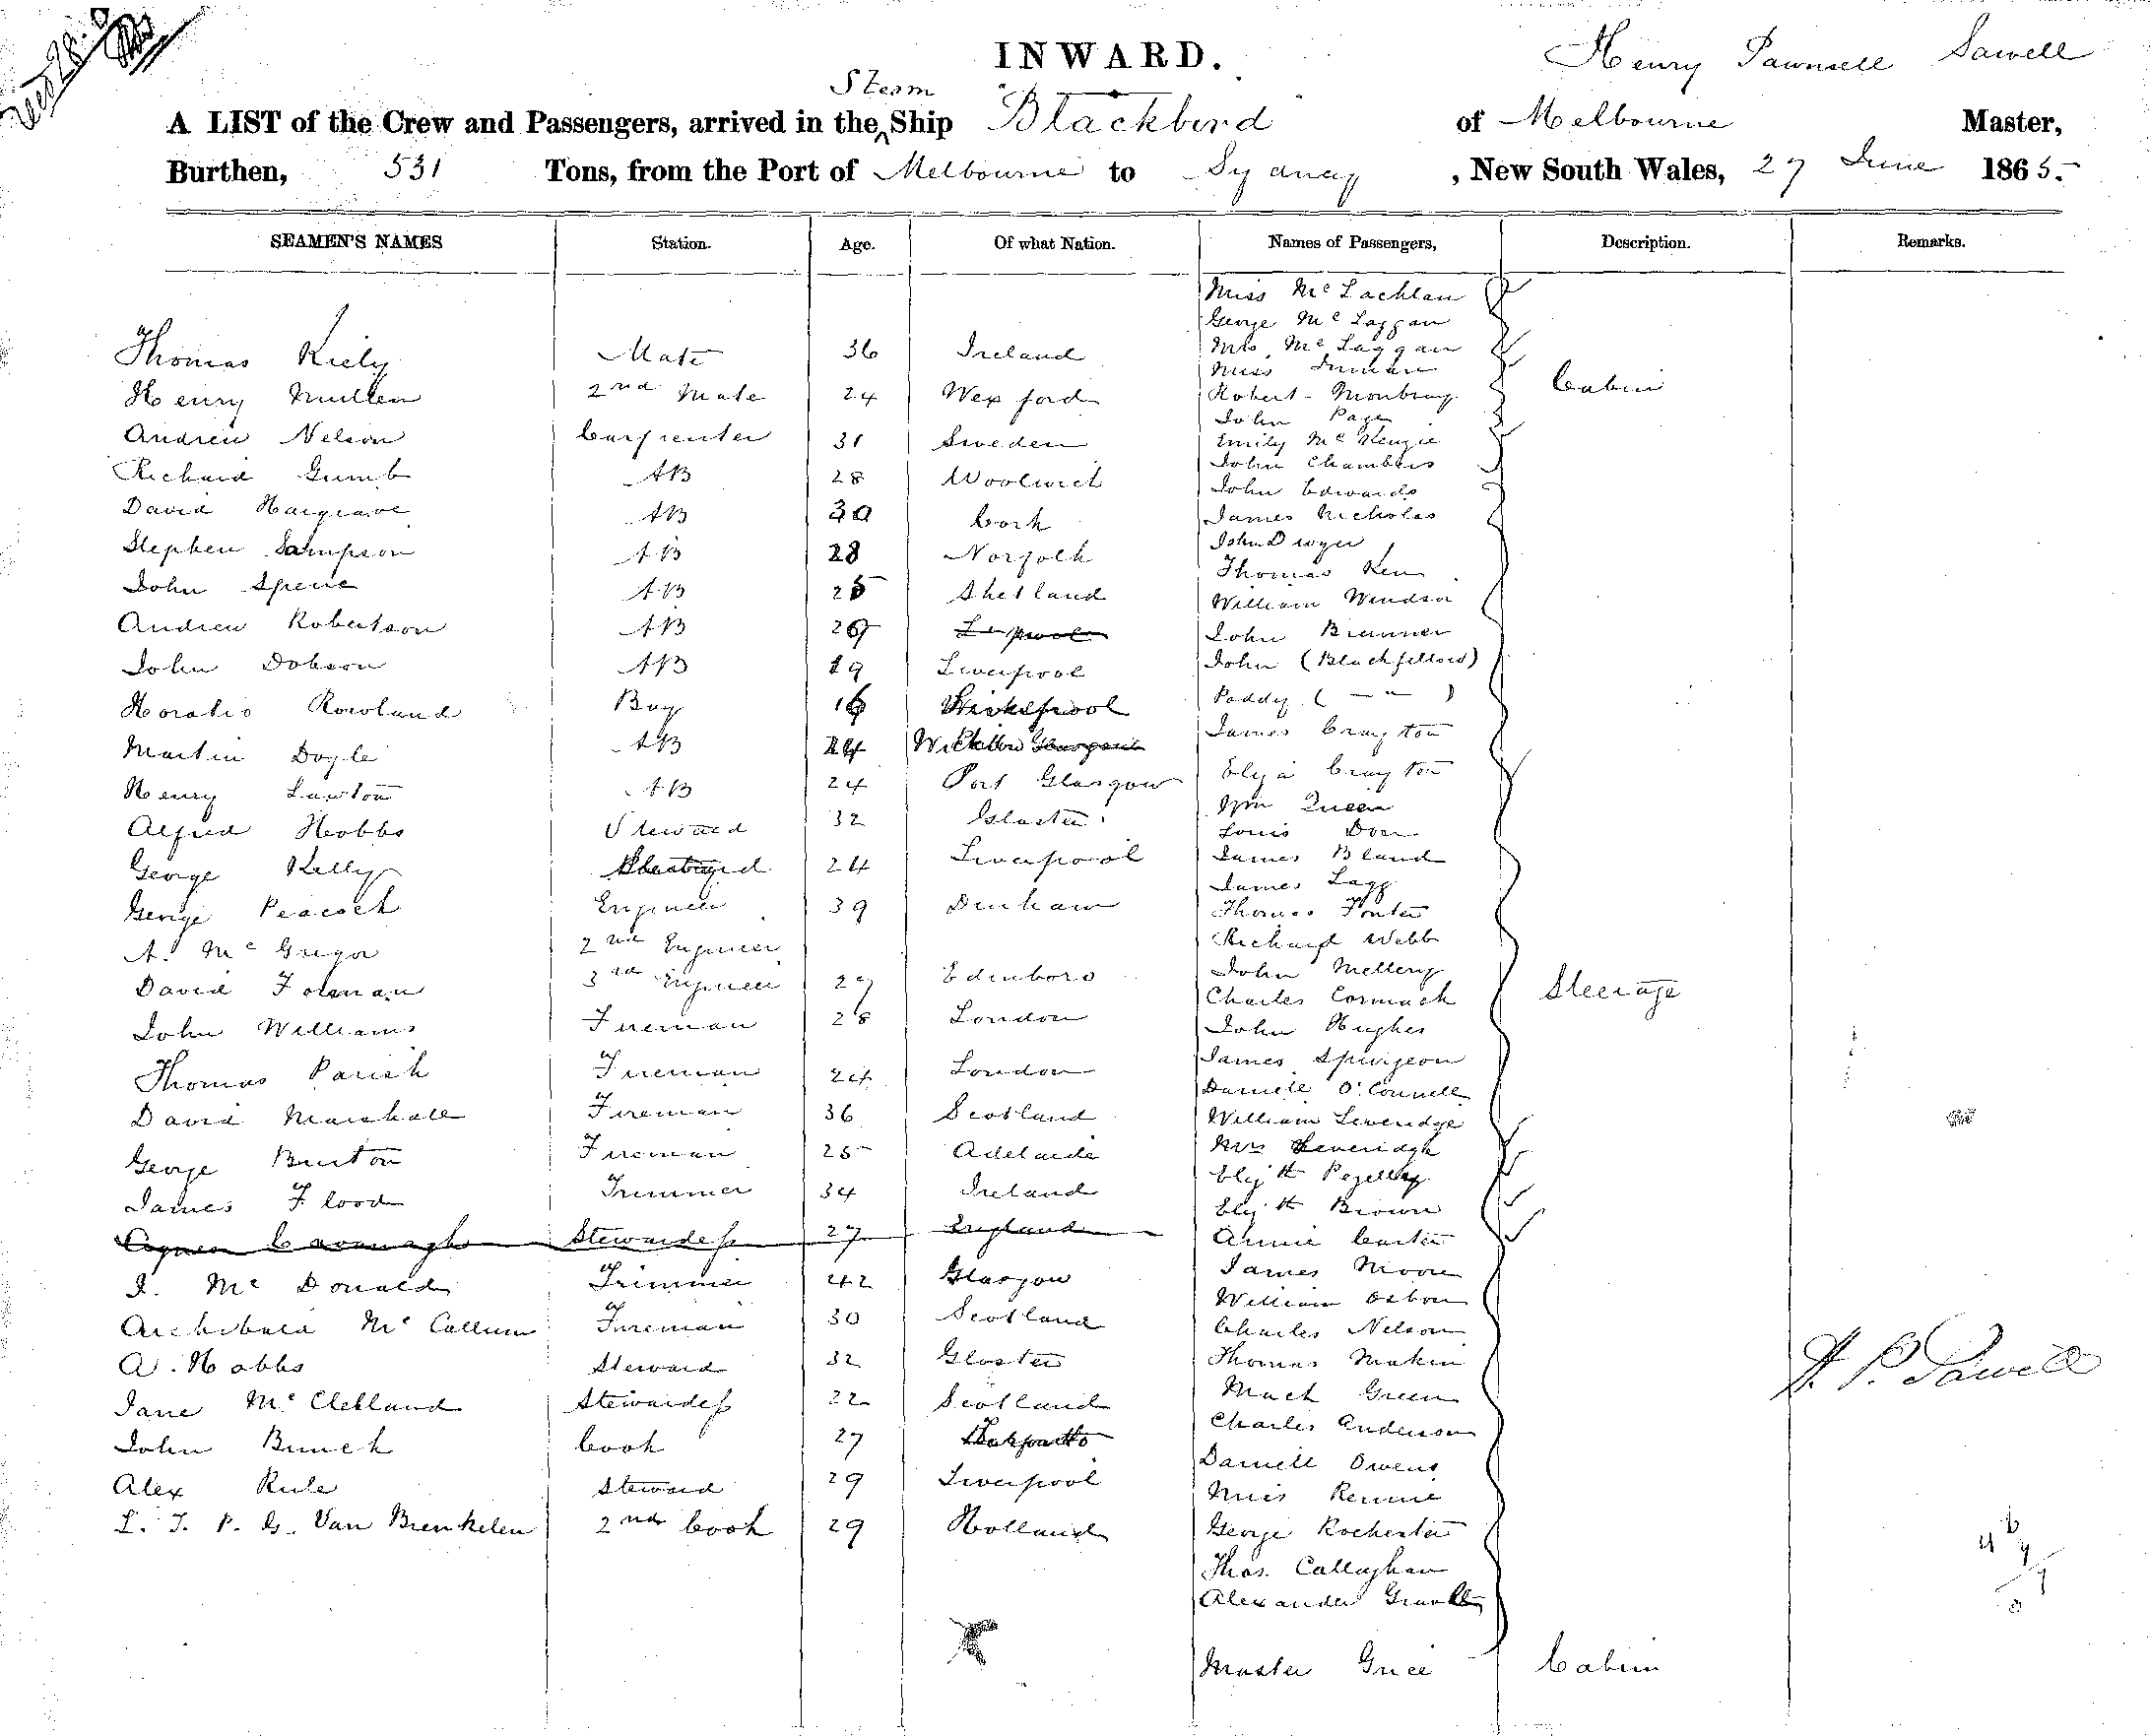 INWARD.
Henry Pawnsell Sawell
Steam
A LIST of the Crew and Passengers, arrived in the Ship Blackbird of Melbourne Master,
Burthen, 531 Tons, from the Port of Melbourne to Sydney, New South Wales, 27 June 1865.
SEAMEN'S NAMES Station. Age. Of what Nation. Names of Passengers, Description. Remarks.
Miss McLachlan
George McLaggan
Thomas Kiely Mate 36 Ireland Mrs. McLaggan
Miss Inman
Henry Mullen 2nd Mate 24 Wexford Robert Monbray Cabin
John Page
Andrew Nelson Carpenter 31 Sweden Emily McKenzie
Richard Gumb AB 28 Woolwich John Chambers
John Edwards
David Hargrave AB 30 Cork James Nicholas
Stephen Sampson AB 28 Norfolk John Dwyer
Thomas Ken
John Spence AB 25 Shetland William Windsor
Andrew Robertson AB 26 L'pool John Brunner
John Dobson AB 19 Liverpool John (Blackfellow)
Horatio Rowland Boy 16 Paddy ( — " )
Martin Doyle AB 24 Wicklow James Crayton
Henry Lawton AB 24 Port Glasgow Eliza Crayton
Wm Queen
Alfred Hobbs Steward 32 Gloster Louis Don
George Kelly 24 Liverpool James Bland
James Lagg
George Peacock Engineer 39 Durham Thomas Fonter
A. McGregor 2nd Engineer Richard Webb
David Folman 3rd Engineer 27 Edinboro John Mellery
Charles Cormack Steerage
John Williams Fireman 28 London John Hughes
James Spurgeon
Thomas Parish Fireman 24 London Daniell O'Connell
David Marshall Fireman 36 Scotland William Leveridge
George Burton Fireman 25 Adelaide Mrs Leveridge
Elizth
James Flood Trimmer 34 Ireland Elizth Brown
Agnes Cavanagh Stewardess 27 England Annie Carter
J. McDonald Trimmer 42 Glasgow James Moore
William Osbon
Archibald McCallum Fireman 30 Scotland Charles Nelson
A. Hobbs Steward 32 Gloster Thomas Makin
H. P. Sawell
Jane McClelland Stewardess 22 Scotland Mack Green
Charles Anderson
John Bunch Cook 27 Daniell Owens
Alex Rule Steward 29 Liverpool Miss Rennie
L. J. P. G. Van Brenkelen 2nd Cook 29 Holland George Rochester
Thos. Callaghan
Alexander
Master Grice Cabin